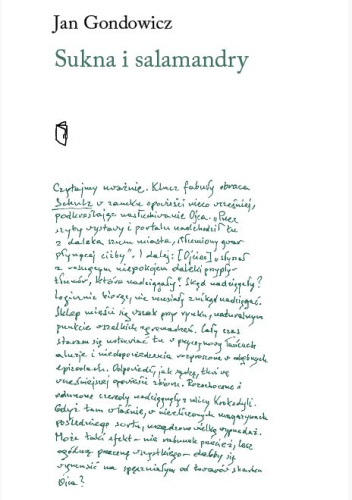 Jan Gondowicz
Sukna i salamandry
Czytajmy uważnie. Klucz fabuły obraca
Schulz w zamku opowieści nieco wcześniej,
podkreślając nasłuchiwanie Ojca. „Przez
szyby wystawy i portalu nadchodził tu
z daleka szum miasta, stłumiony gwar
płynącej ciżby”. I dalej: [Ojciec] „słyszał
z rosnącym niepokojem daleki przypływ
tłumów, które nadciągały”. Skąd nadciągały?
Logicznie biorąc, nie musiały znikąd nadciągać.
Sklep mieści się wszak przy rynku, naturalnym
punkcie wszelkich zgromadzeń. Cały czas
staram się ustawiać tu w przyczynowy łańcuch
aluzje i niedopowiedzenia rozproszone w odrębnych
epizodach. Odpowiedź, jak sądzę, tkwi we
wcześniejszej opowieści zbioru. Rozochocone i
czeredy nadciągnęły z ulicy Krokodyli.
Gdyż tam właśnie, w niezliczonych magazynach
pośledniego sortu, urządzono wielką wyprzedaż.
Może taki efekt – nie rabunek przecież, lecz
ogólną przecenę wszystkiego – dałoby się
wynosić na od towarów skarbca
Ojca?